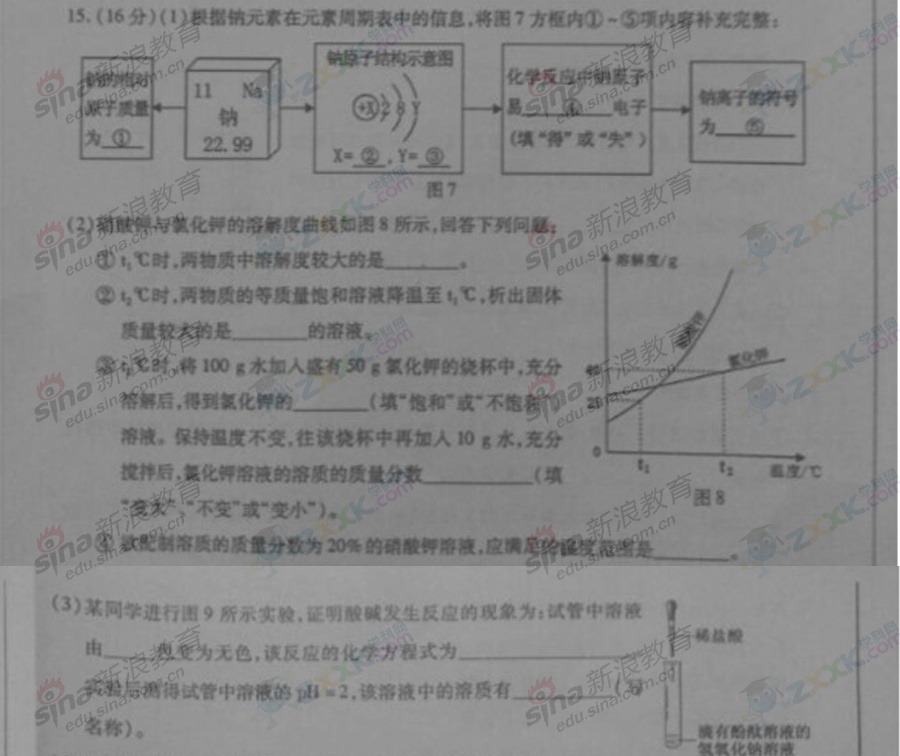 15.(16分)(1)根据钠元素在元素周期表中的信息,将图7方框内①~⑤项内容补充完整:
钠的相对
原子质量
为 ①
11 Na
钠
22.99
钠原子结构示意图
+X 2 8 Y
X= ② ,Y= ③
化学反应中钠原子
易 ④ 电子
(填“得”或“失”)
钠离子的符号
为 ⑤
图7
(2)硝酸钾与氯化钾的溶解度曲线如图8所示,回答下列问题:
① t₁℃时,两物质中溶解度较大的是______。
② t₂℃时,两物质的等质量饱和溶液降温至t₁℃,析出固体
质量较大的是______的溶液。
③ t₂℃时,将100 g水加入盛有50 g氯化钾的烧杯中,充分
溶解后,得到氯化钾的______(填“饱和”或“不饱和”)
溶液。保持温度不变,往该烧杯中再加入10 g水,充分
搅拌后,氯化钾溶液的溶质的质量分数________(填
“变大”、“不变”或“变小”)。
④ 欲配制溶质的质量分数为20%的硝酸钾溶液,应满足的温度范围是______。
溶解度/g
氯化钾
0
t₁
t₂
温度/℃
图8
(3)某同学进行图9所示实验,证明酸碱发生反应的现象为:试管中溶液
由____色变为无色,该反应的化学方程式为____________
实验后测得试管中溶液的pH=2,该溶液中的溶质有________(写
名称)。
稀盐酸
滴有酚酞溶液的
氢氧化钠溶液
sina新浪教育
edu.sina.com.cn
学科网
ZXXK.com